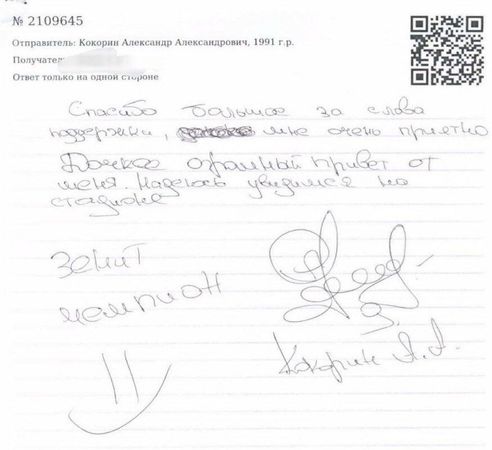 № 2109645
Отправитель: Кокорин Александр Александрович, 1991 г.р.
Получател
Ответ только на одной стороне
Спасибо большое за слова
поддержки, мне очень приятно
Дочке огромный привет от
меня. Надеюсь увидимся на
стадионе
Зенит
чемпион
Кокорин А.А.